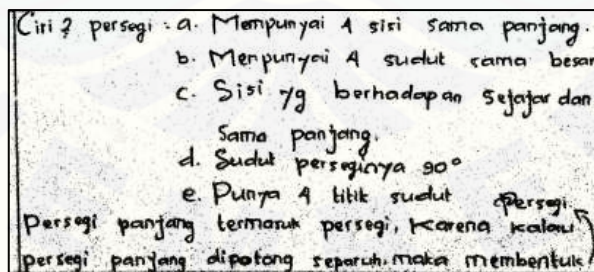 Ciri 2 persegi : a. Mempunyai 4 sisi sama panjang.
b. Menpunyai 4 sudut sama besar
c. Sisi yg berhadapan sejajar dan
sama panjang.
d. Sudut perseginya 90°
e. Punya 4 titik sudut
Persegi panjang termasuk persegi, karena kalau persegi.
persegi panjang dipotong separuh, maka membentuk